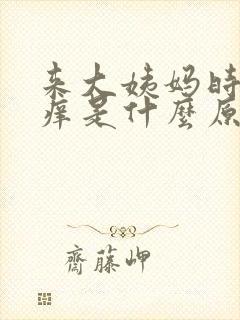 来大姨妈时
痒是什麼原
齋藤岬